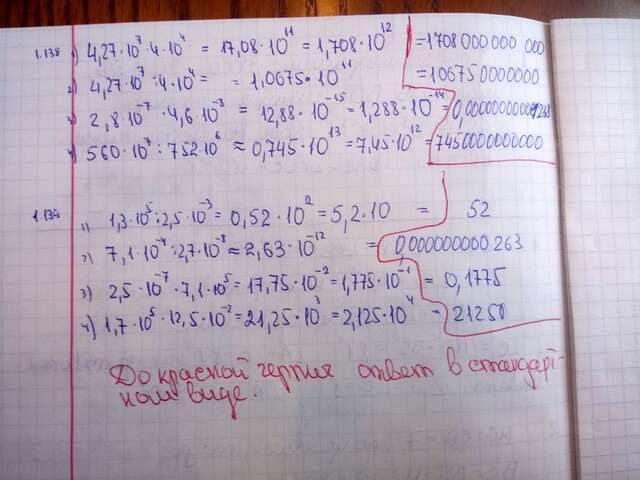 1.138 1) 4,27·10⁷·4·10⁴ = 17,08·10¹¹ = 1,708·10¹² = 1708 000 000 000
2) 4,27·10⁷:4·10⁴= = 1,0675·10¹¹ = 106750000000
3) 2,8·10⁻⁷·4,6·10⁻⁸ = 12,88·10⁻¹⁵ = 1,288·10⁻¹⁴ = 0,00000000001288
4) 560·10⁷:752·10⁶ ≈ 0,745·10¹³ = 7,45·10¹² = 7450000000000
1.139 1) 1,3·10⁵:2,5·10⁻³ = 0,52·10² = 5,2·10 = 52
2) 7,1·10⁻⁴:2,7·10⁻⁸ ≈ 2,63·10⁻¹² = 0,000000000 263
3) 2,5·10⁻⁷·7,1·10⁵ = 17,75·10⁻² = 1,775·10⁻¹ = 0,1775
4) 1,7·10⁵·12,5·10⁻² = 21,25·10³ = 2,125·10⁴ = 21250
До красной чертия ответ в стандарт-
ном виде.